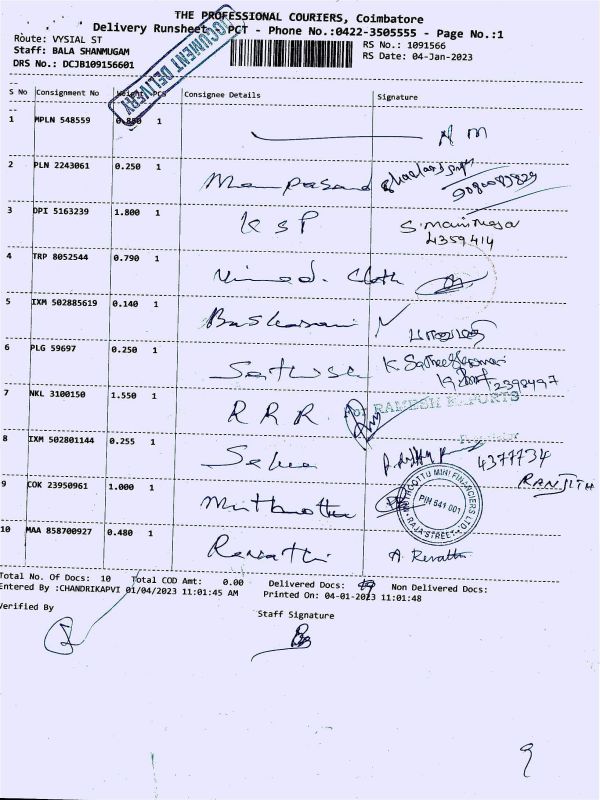 THE PROFESSIONAL COURIERS, Coimbatore
Delivery Runsheet - PCT - Phone No.:0422-3505555 - Page No.:1
Route: VYSIAL ST
RS No.: 1091566
Staff: BALA SHANMUGAM
RS Date: 04-Jan-2023
DRS No.: DCJB109156601
DOCUMENT DELIVERY
S No Consignment No Weight PCS Consignee Details Signature
1 MPLN 548559 0.880 1
2 PLN 2243061 0.250 1 Manpasand
3 DPI 5163239 1.800 1 K S P
4359414
4 TRP 8052544 0.790 1 Vinod. Cloth
5 IXM 502885619 0.140 1
6 PLG 59697 0.250 1
2398497
7 NKL 3100150 1.550 1 R R R
For RAMESH EXPORTS
8 IXM 502801144 0.255 1 Selva 4377734
RANJITH
9 COK 23950961 1.000 1 Muthoottu
MUTHOOTTU MINI FINANCIERS LTD
PIN 641 001
RAJA STREET
10 MAA 858700927 0.480 1 Revathi A. Revathi
Total No. Of Docs: 10 Total COD Amt: 0.00 Delivered Docs: Non Delivered Docs:
Entered By :CHANDRIKAPVI 01/04/2023 11:01:45 AM Printed On: 04-01-2023 11:01:48
Verified By
Staff Signature
9